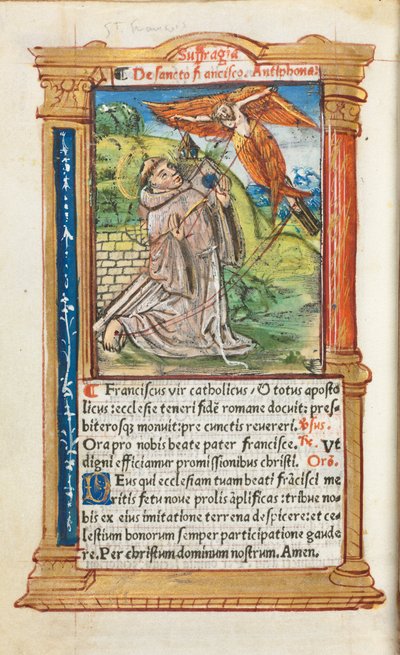 St. Francis
Suffragia
¶ De sancto frãncisco. Antiphona:
¶ Franciscus vir catholicus / & totus aposto
licus: ecclesie teneri fidẽ romane docuit: pres-
biterosq monuit: pre cunctis revereri. Vsus.
Ora pro nobis beate pater francisce. Re. Vt
digni efficiamur promissionibus christi. Orõ.
Deus qui ecclesiam tuam beati frãcisci me
ritis fetu noue prolis ãplificas: tribue no-
bis ex eius imitatione terrena despicere: et ce-
lestium bonorum semper participatione gaude
re. Per christum dominum nostrum. Amen.